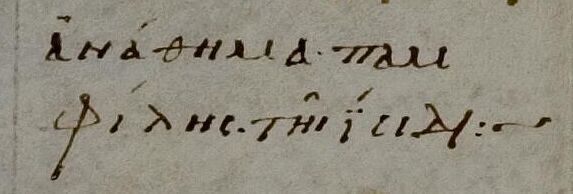 ἀνάθημα· παμ
φίλης. τῆι ΐσιδι:~